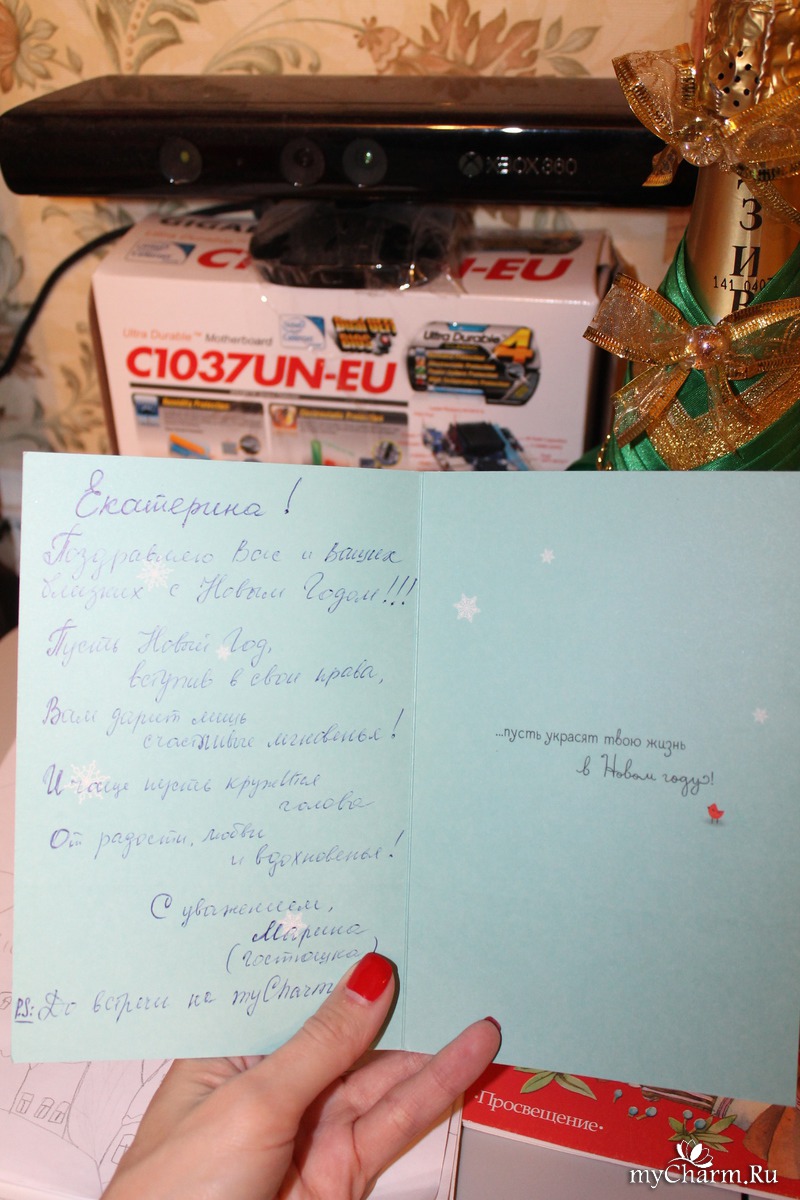 XBOX 360
З
И
В
141 040
UN-EU
Ultra Durable™ Motherboard
Ultra Durable 4
C1037UN-EU
Екатерина!
Поздравляю Вас и Ваших
близких с Новым Годом!!!
Пусть Новый Год,
вступив в свои права,
Вам дарит лишь
счастливые мгновенья!
И чаще пусть кружится
голова
От радости, любви
и вдохновенья!
С уважением,
Марина
(гостюшка)
P.S: До встречи на myCharm
...пусть украсят твою жизнь
в Новом году!
·Просвещение·
myCharm.Ru